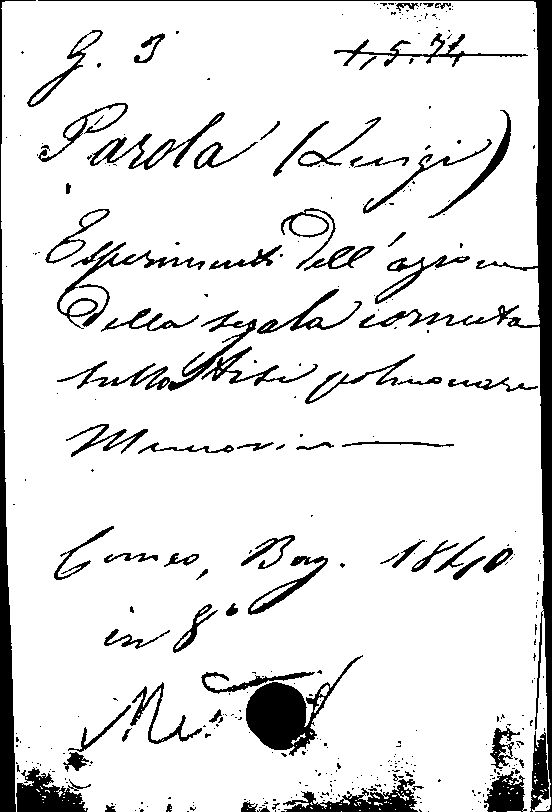 G. 3 1,5.74
Parola (Luigi)
Esperimenti dell'azione
della segala cornuta
sulla tisi polmonare
Memoria
Cuneo, 1840
in 8°